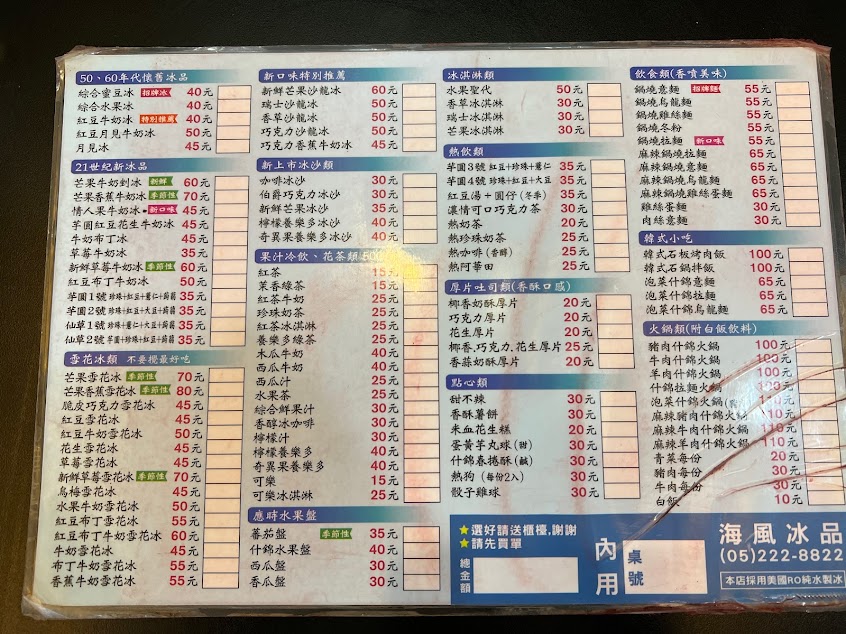 50、60年代懷舊冰品
綜合蜜豆冰 招牌冰 40元
綜合水果冰 40元
紅豆牛奶冰 特別推薦 40元
紅豆月見牛奶冰 50元
月見冰 45元
21世紀新冰品
芒果牛奶剉冰 新鮮 60元
芒果香蕉牛奶冰 季節性 70元
情人果牛奶冰 新口味 45元
芋圓紅豆花生牛奶冰 45元
牛奶布丁冰 45元
草莓牛奶冰 35元
新鮮草莓牛奶冰 季節性 60元
紅豆布丁牛奶冰 50元
芋圓1號 珍珠+紅豆+薏仁+蒟蒻 35元
芋圓2號 珍珠+紅豆+大豆+蒟蒻 35元
仙草1號 珍珠+薏仁+大豆+蒟蒻 35元
仙草2號 芋圓+珍珠+紅豆+蒟蒻 35元
雪花冰類 不要攪最好吃
芒果雪花冰 季節性 70元
芒果香蕉雪花冰 季節性 80元
脆皮巧克力雪花冰 45元
紅豆雪花冰 45元
紅豆牛奶雪花冰 50元
花生雪花冰 45元
草莓雪花冰 45元
新鮮草莓雪花冰 季節性 70元
烏梅雪花冰 45元
水果牛奶雪花冰 50元
紅豆布丁雪花冰 55元
紅豆布丁牛奶雪花冰 60元
牛奶雪花冰 45元
布丁牛奶雪花冰 55元
香蕉牛奶雪花冰 55元
新口味特別推薦
新鮮芒果沙瓏冰 60元
瑞士沙瓏冰 50元
香草沙瓏冰 50元
巧克力沙瓏冰 50元
巧克力香蕉牛奶冰 45元
新上市冰沙類
咖啡冰沙 30元
伯爵巧克力冰沙 30元
新鮮芒果冰沙 35元
檸檬養樂多冰沙 40元
奇異果養樂多冰沙 40元
果汁冷飲、花茶類 500
紅茶 15元
茉香綠茶 15元
紅茶牛奶 25元
珍珠奶茶 25元
紅茶冰淇淋 25元
養樂多綠茶 30元
木瓜牛奶 40元
西瓜牛奶 40元
西瓜汁 25元
水果茶 25元
綜合鮮果汁 30元
香醇冰咖啡 30元
檸檬汁 30元
檸檬養樂多 40元
奇異果養樂多 40元
可樂 15元
可樂冰淇淋 25元
應時水果盤
蕃茄盤 季節性 35元
什錦水果盤 40元
西瓜盤 30元
香瓜盤 30元
冰淇淋類
水果聖代 50元
香草冰淇淋 30元
瑞士冰淇淋 30元
芒果冰淇淋 30元
熱飲類
芋圓3號 紅豆+珍珠+薏仁 35元
芋圓4號 珍珠+紅豆+大豆 35元
紅豆湯+圓仔(冬季) 35元
濃情可口巧克力茶 30元
熱奶茶 25元
熱珍珠奶茶 25元
熱咖啡(香醇) 25元
熱阿華田 25元
厚片吐司類(香酥口感)
椰香奶酥厚片 20元
巧克力厚片 20元
花生厚片 20元
椰香.巧克力.花生厚片 25元
香蒜奶酥厚片 20元
點心類
甜不辣 30元
香酥薯餅 30元
米血花生糕 20元
蛋黃芋丸球(甜) 30元
什錦春捲酥(鹹) 30元
熱狗(每份2入) 30元
骰子雞球 30元
★選好請送櫃檯,謝謝
★請先買單
總金額
內用
桌號
飲食類(香噴美味)
鍋燒意麵 招牌麵 55元
鍋燒烏龍麵 55元
鍋燒雞絲麵 55元
鍋燒冬粉 55元
鍋燒拉麵 新口味 55元
麻辣鍋燒拉麵 65元
麻辣鍋燒意麵 65元
麻辣鍋燒烏龍麵 65元
麻辣鍋燒雞絲蛋麵 65元
雞絲蛋麵 30元
肉絲意麵 30元
韓式小吃
韓式石板烤肉飯 100元
韓式石鍋拌飯 100元
泡菜什錦意麵 65元
泡菜什錦拉麵 65元
泡菜什錦烏龍麵 65元
火鍋類(附白飯飲料)
豬肉什錦火鍋 100元
牛肉什錦火鍋 100元
羊肉什錦火鍋 100元
什錦拉麵火鍋 100元
泡菜什錦火鍋 110元
麻辣豬肉什錦火鍋 110元
麻辣牛肉什錦火鍋 110元
麻辣羊肉什錦火鍋 110元
青菜每份 20元
豬肉每份 30元
牛肉每份 30元
白飯 10元
海風冰品
(05)222-8822
本店採用美國RO純水製冰